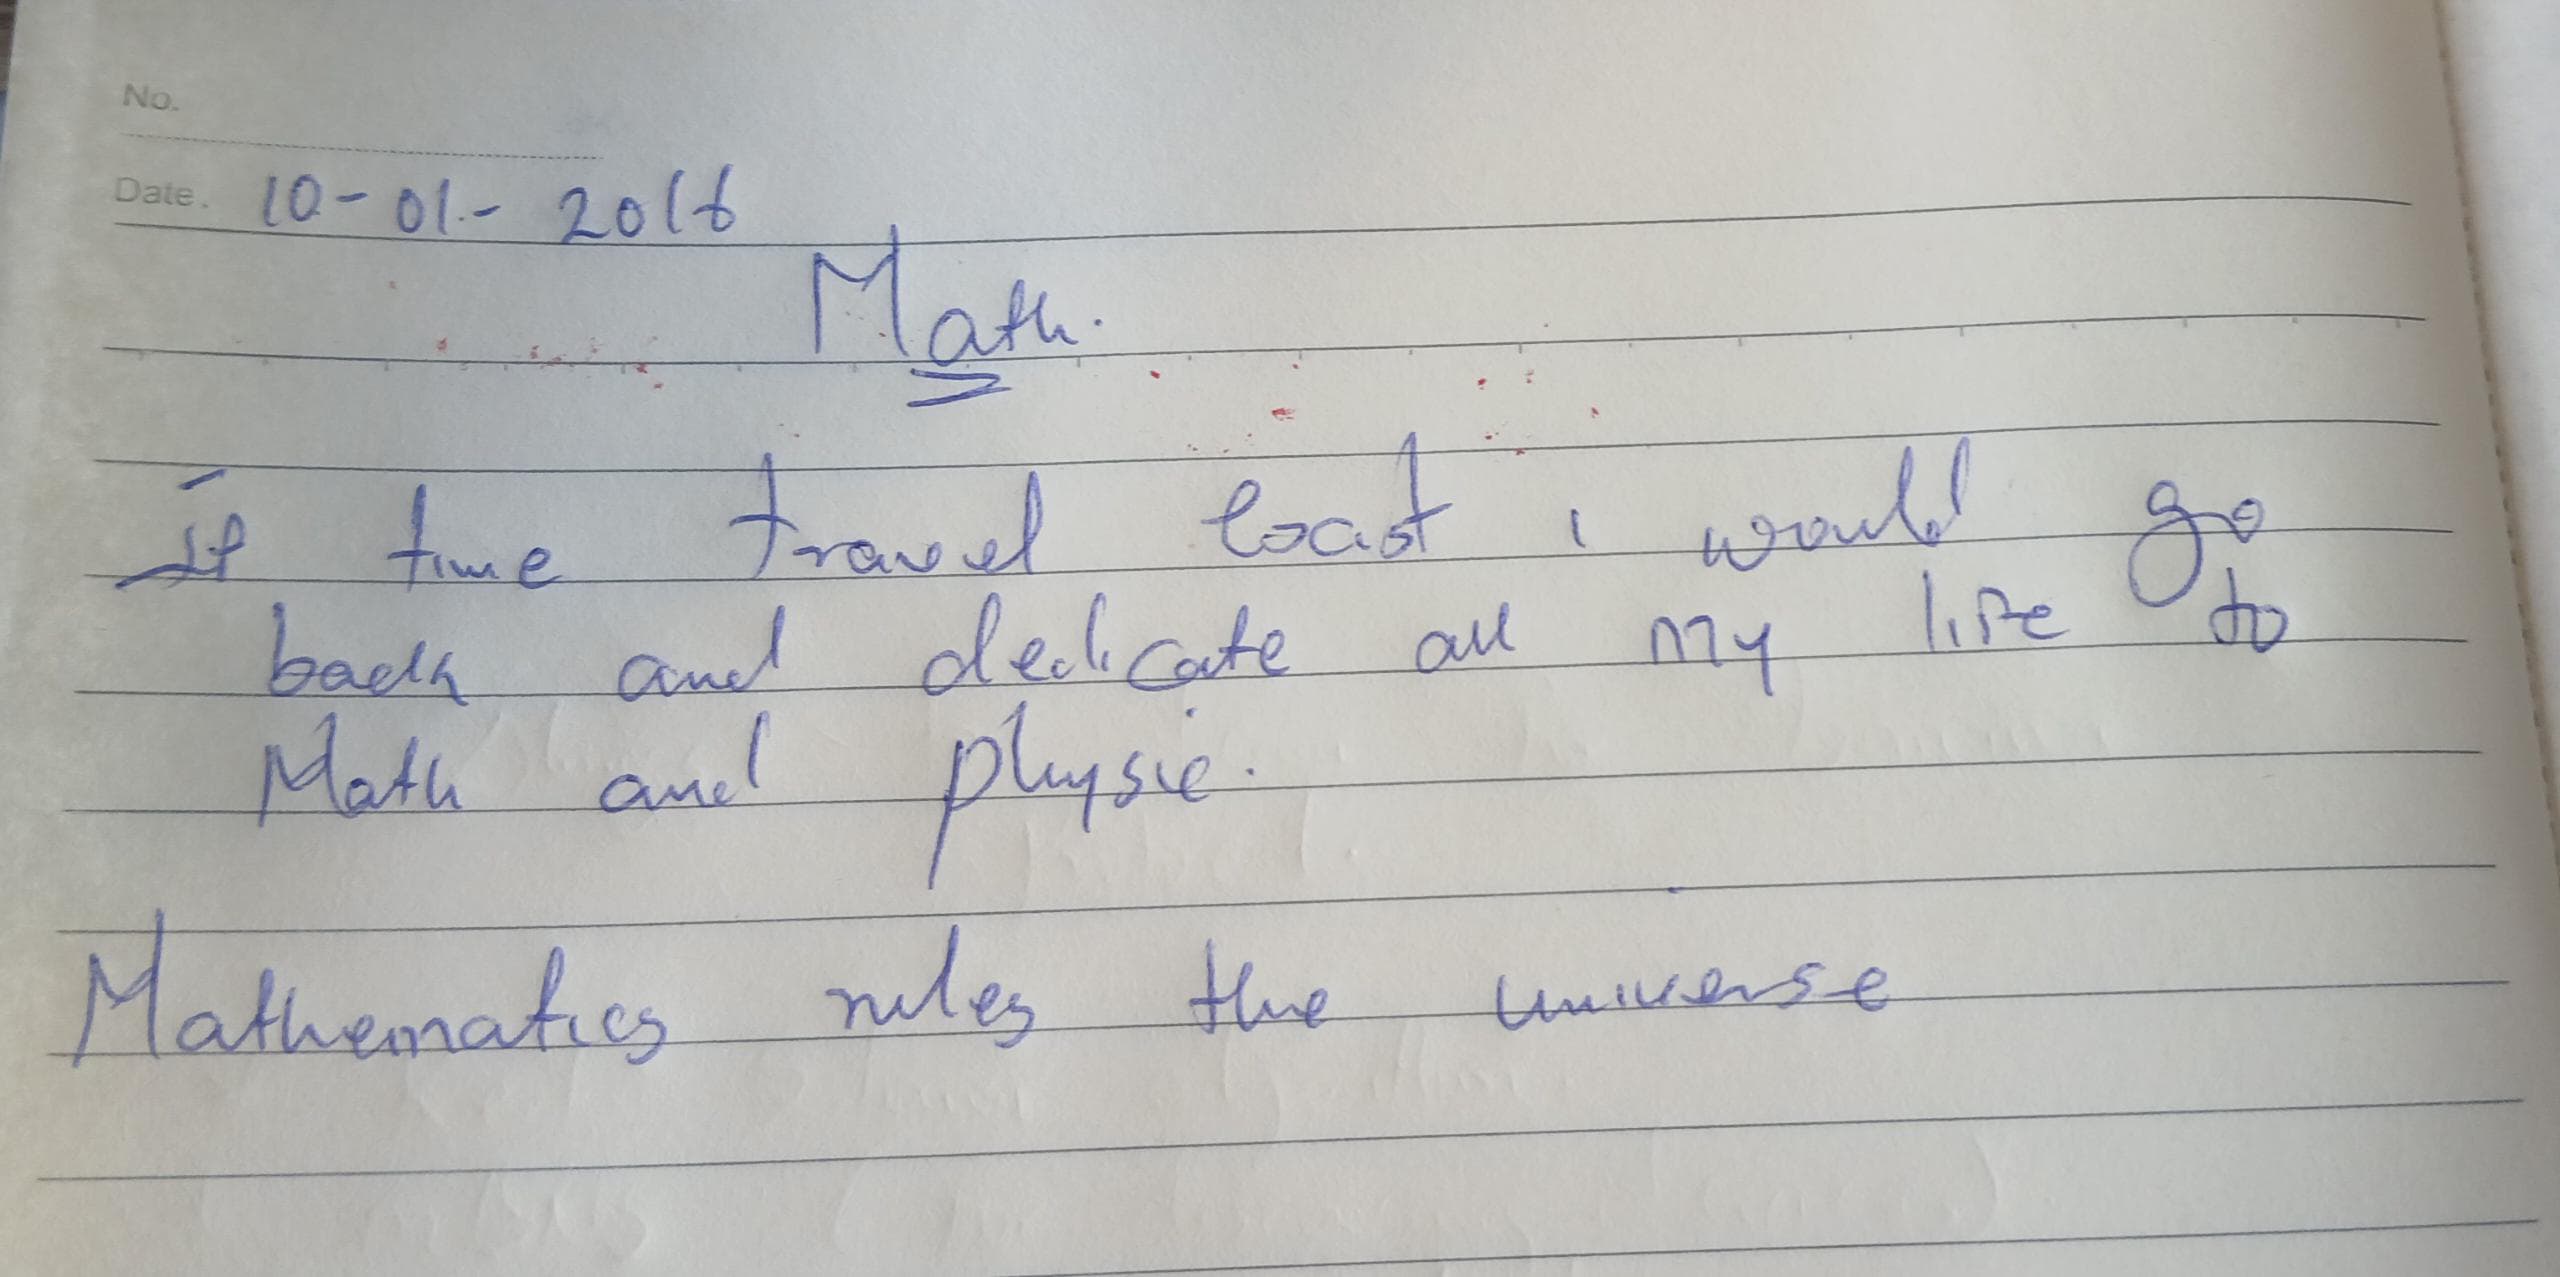 No.
Date. 10-01-2016
Math.
If time travel exist i would go
back and dedicate all my life to
Math and physic.
Mathematics rules the universe